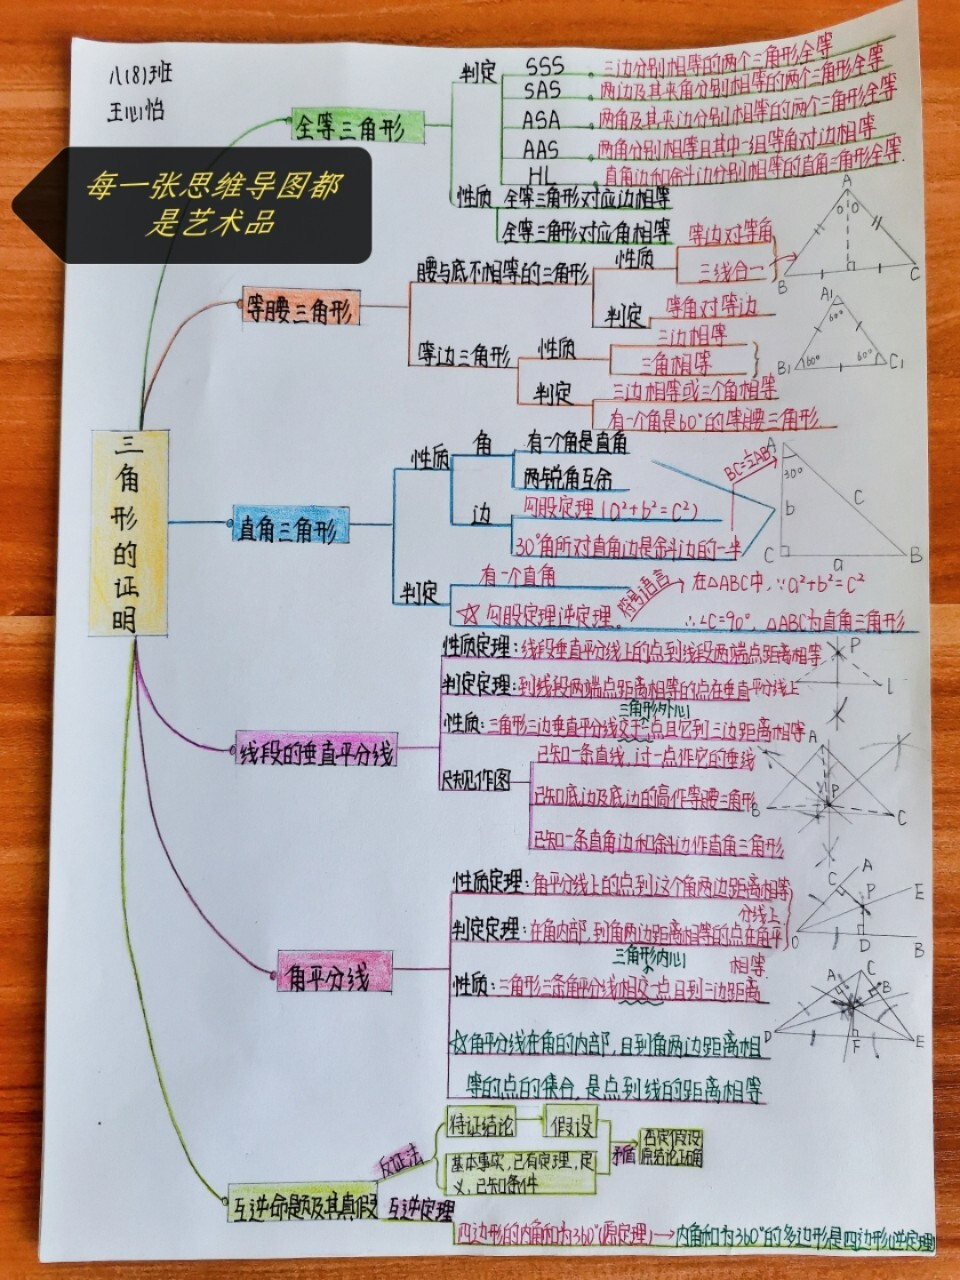 八(8)班
王心怡
每一张思维导图都
是艺术品
三角形的证明
全等三角形
判定
SSS 三边分别相等的两个三角形全等
SAS 两边及其夹角分别相等的两个三角形全等
ASA 两角及其夹边分别相等的两个三角形全等
AAS 两角分别相等且其中一组等角对边相等
HL 直角边和斜边分别相等的直角三角形全等.
性质 全等三角形对应边相等
全等三角形对应角相等
等腰三角形
腰与底不相等的三角形
性质
等边对等角
三线合一
判定 等角对等边
等边三角形
性质
三边相等
三角相等
判定
三边相等或三个角相等
有一个角是60°的等腰三角形
A
B
C
A1
60°
B1 60° 60° C1
直角三角形
性质
角
有一个角是直角
两锐角互余
边
勾股定理(a²+b²=c²)
30°角所对直角边是斜边的一半
BC=½AB
A
30°
b
c
C
a
B
判定
有一个直角
☆勾股定理逆定理.
符号语言
在△ABC中,∵a²+b²=c²
∴∠C=90°,△ABC为直角三角形
线段的垂直平分线
性质定理:线段垂直平分线上的点到线段两端点距离相等
判定定理:到线段两端点距离相等的点在垂直平分线上
三角形外心
性质:三角形三边垂直平分线交于一点且它到三边距离相等
尺规作图
已知一条直线,过一点作它的垂线
已知底边及底边的高作等腰三角形
已知一条直角边和斜边作直角三角形
P
l
A
P
B
C
角平分线
性质定理:角平分线上的点到这个角两边距离相等
判定定理:在角内部,到角两边距离相等的点在角平
分线上
三角形内心
性质:三角形三条角平分线相交一点且到三边距离
相等.
☆角平分线在角的内部,且到角两边距离相
等的点的集合,是点到线的距离相等
A
C
P
E
O
D
B
A
C
B
D
F
E
互逆命题及其真假
反证法
特证结论
假设
基本事实,已有定理,定
义,已知条件
矛盾
否定假设
原结论正确
互逆定理
四边形的内角和为360°(原定理)→内角和为360°的多边形是四边形(逆定理)